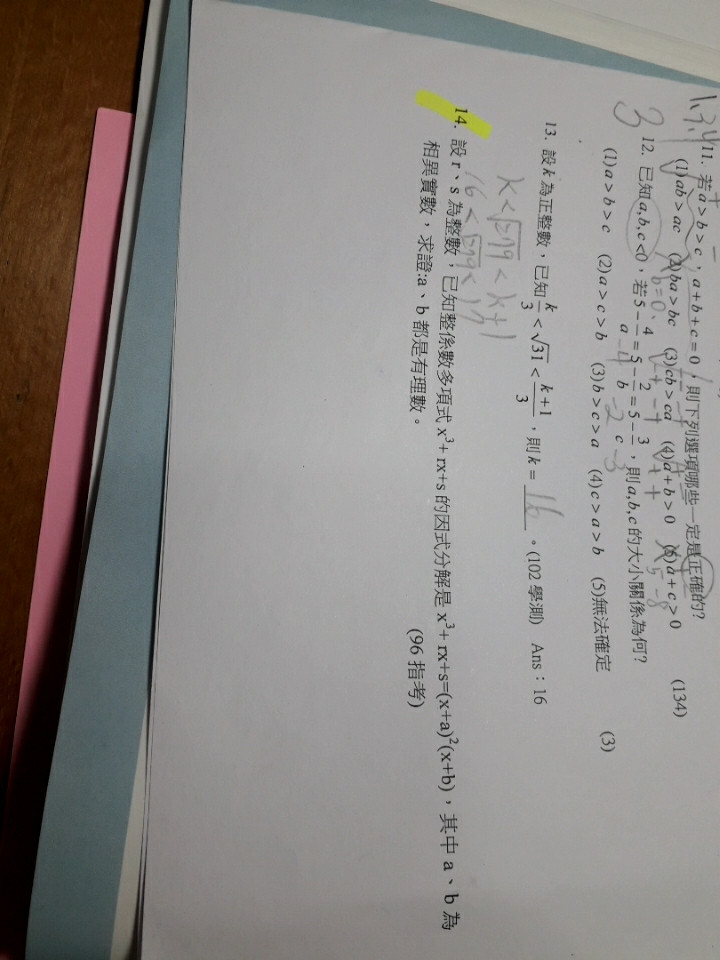 1,3,4
11. 若 a > b > c，a + b + c = 0，則下列選項哪些一定是正確的?
(1)ab > ac (2)ba > bc (3)cb > ca (4)a + b > 0 (5)a + c > 0 (134)
3
12. 已知 a,b,c <0，若 5 − 4/a = 5 − 2/b = 5 − 3/c，則 a,b,c 的大小關係為何?
(1)a > b > c (2)a > c > b (3)b > c > a (4)c > a > b (5)無法確定 (3)
13. 設 k 為正整數，已知 k/3 < √31 < (k+1)/3，則 k = 16 。(102 學測) Ans：16
k < √279 < k+1
16 < √279 < 17
14. 設 r、s 為整數，已知整係數多項式 x³+ rx+s 的因式分解是 x³+ rx+s=(x+a)²(x+b)，其中 a、b 為
相異實數，求證:a、b 都是有理數。 (96 指考)